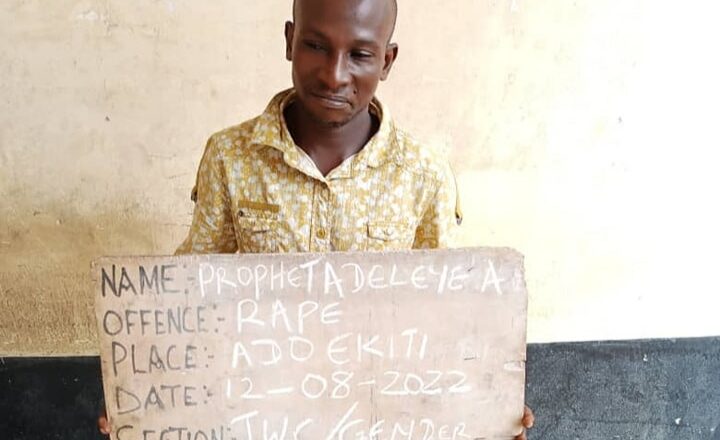 NAME:- PROPHET ADELEYE A
OFFENCE:- RAPE
PLACE:- ADO EKITI
DATE:- 12-08-2022
SECTION:- JWC/GENDER